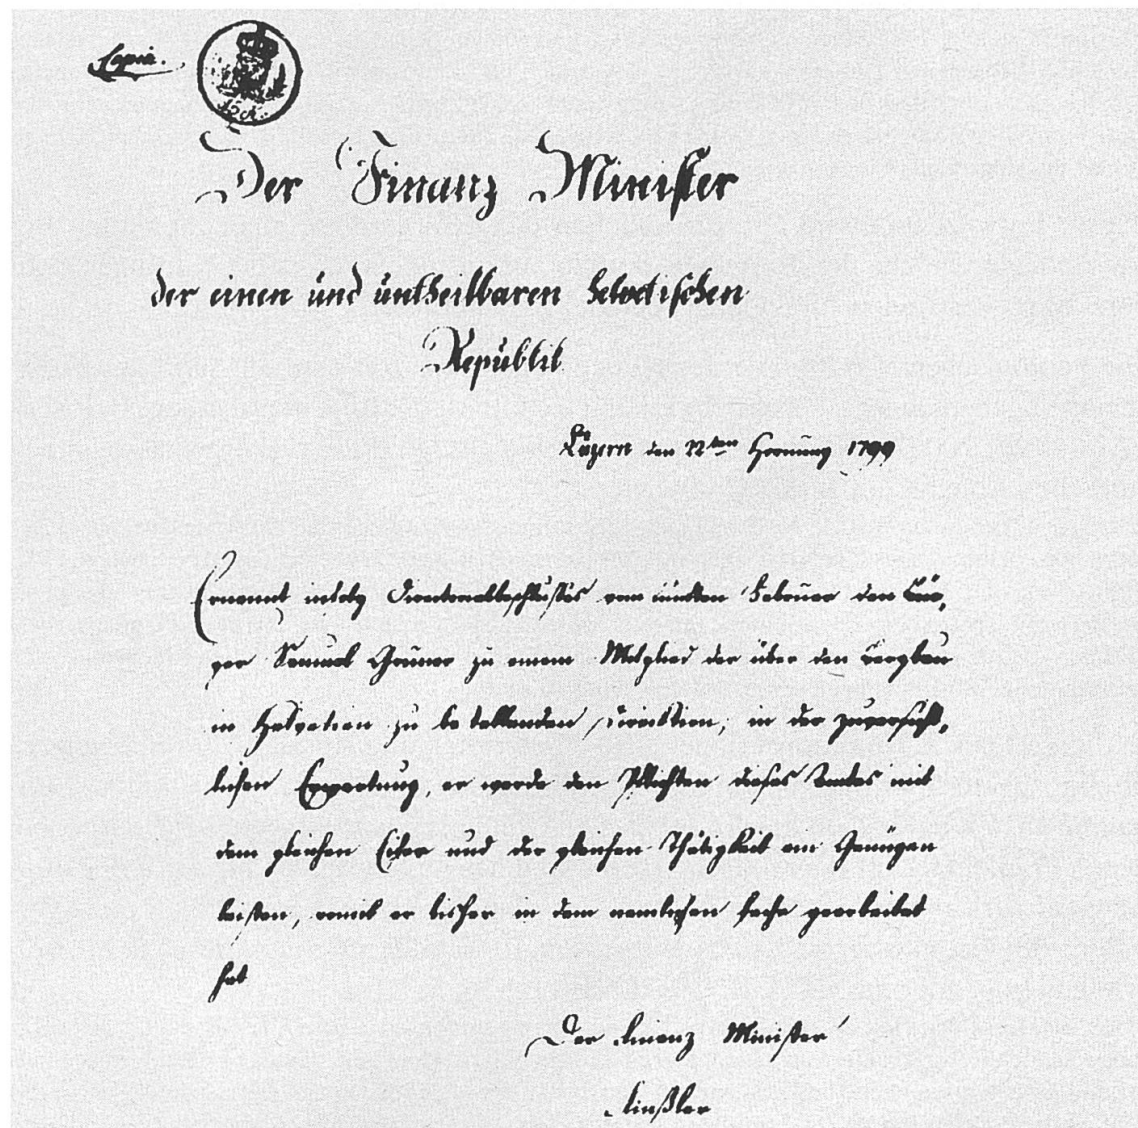 Copia.
Der Finanz Minister
der einen und untheilbaren helvetischen
Republik
Luzern den 22ten Hornung 1799
Ernennt infolg Directorialbeschlußes vom fünften Februar den Bür,
ger Samuel Gruner zu einem Mitglied der über den Bergbau
in Helvetien zu bestellenden Direction, in der zuversicht,
lichen Erwartung, er werde den Pflichten dieses Amtes mit
dem gleichen Eifer und der gleichen Thätigkeit ein Genügen
leisten, womit er bisher in dem nemlichen Fache gearbeitet
hat
Der Finanz Minister
Finßler